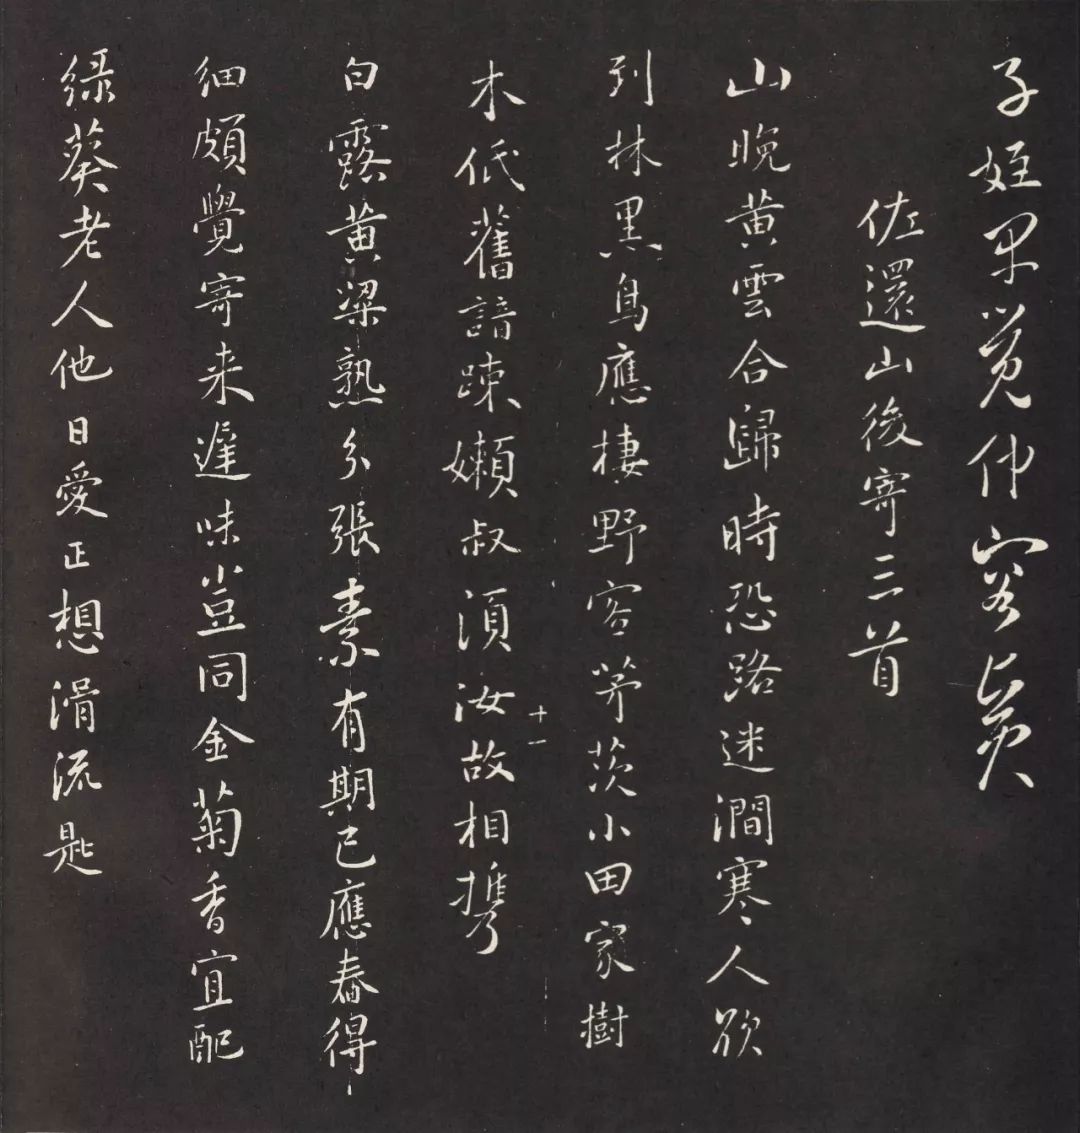 子姪早覺仲容賢
佐還山後寄三首
山晚黄雲合歸時恐路迷澗寒人欲
到林黑鳥應棲野客茅茨小田家樹
十一
木低舊諳踈嬾叔須汝故相攜
白露黄粱熟分張素有期已應舂得
細頗覺寄来遲味豈同金菊香宜配
綠葵老人他日愛正想滑流匙